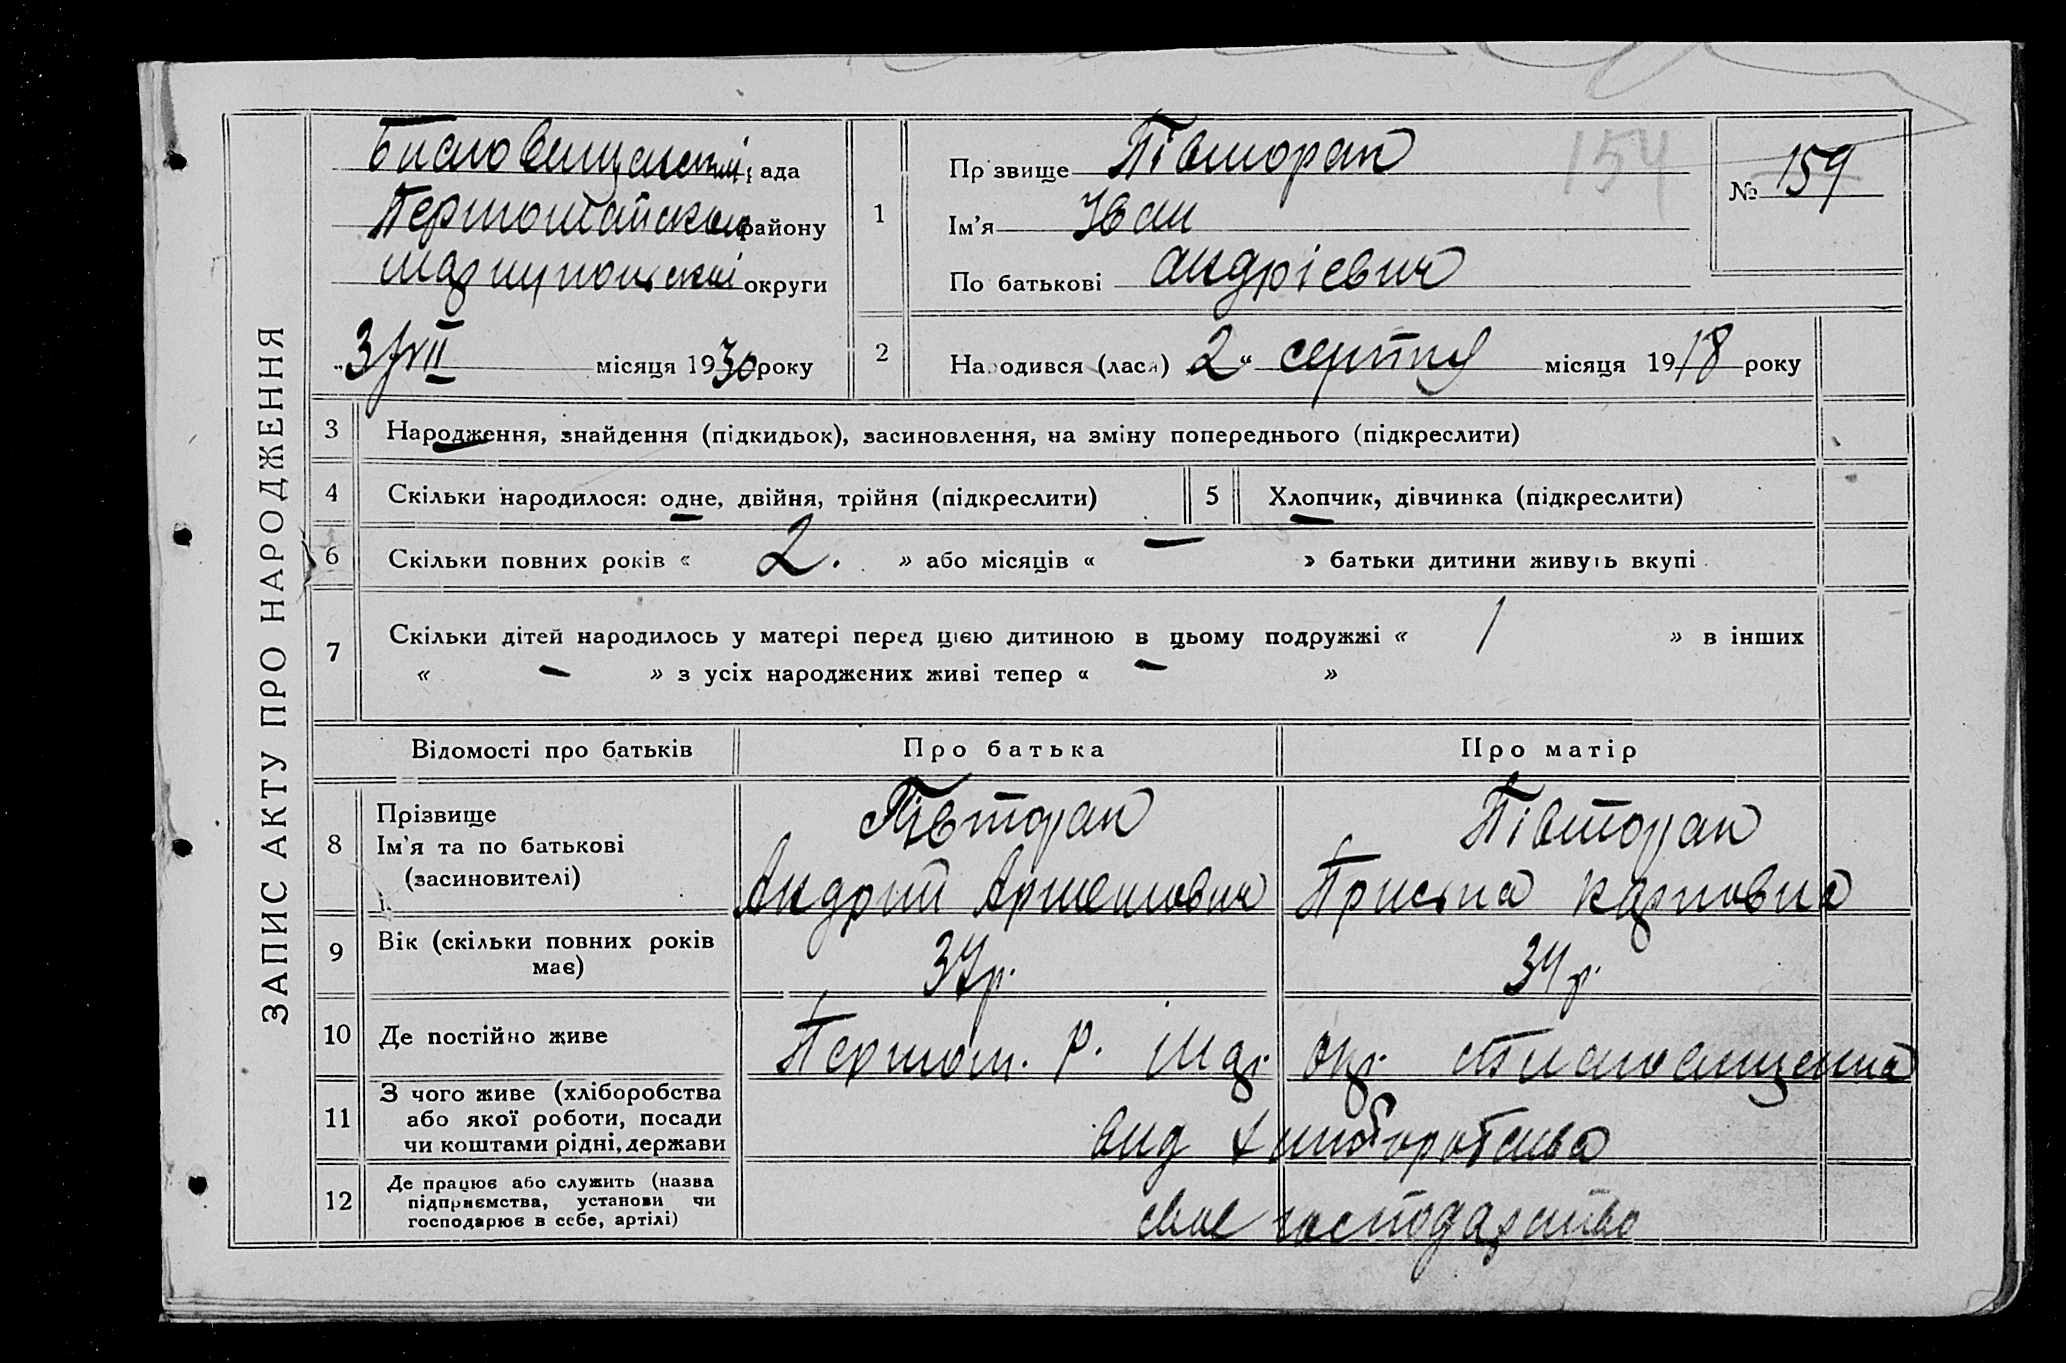 ЗАПИС АКТУ ПРО НАРОДЖЕННЯ
Благовещенської рада
Першотравнев району
Маріупольської округи
"3/VIII місяця 1930 року
1
Прізвище Півторак
Ім'я Іван
По батькові Андрієвич
154
№ 159
2
Народився (лася) 2 " серпня місяця 1918 року
3 Народження, знайдення (підкидьок), засиновлення, на зміну попереднього (підкреслити)
4 Скільки народилося: одне, двійня, трійня (підкреслити) 5 Хлопчик, дівчинка (підкреслити)
6 Скільки повних років « 2. » або місяців « — » батьки дитини живуть вкупі
7 Скільки дітей народилось у матері перед цією дитиною в цьому подружжі « 1 » в інших
« — » з усіх народжених живі тепер « — »
Відомості про батьків Про батька Про матір
8 Прізвище
Ім'я та по батькові
(засновителі)
Півторак
Андрій Артемович
Півторак
Карповна
9 Вік (скільки повних років
має)
37 р. 34 р.
10 Де постійно живе
р. Мар. окр.
11 З чого живе (хліборобства
або якої роботи, посади
чи коштами рідні, держави
від хліборобства
12 Де працює або служить (назва
підприємства, установи чи
господарює в себе, артілі)
своє господарство